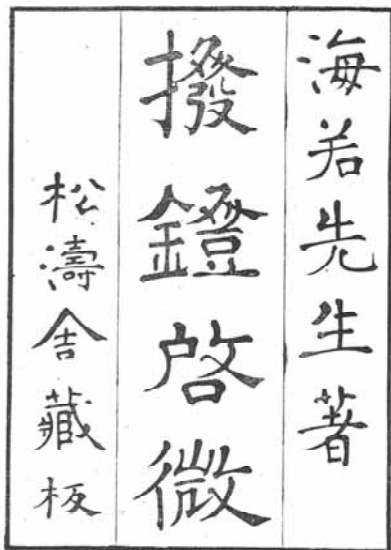 海若先生著
撥鐙啓微
松濤舍藏板